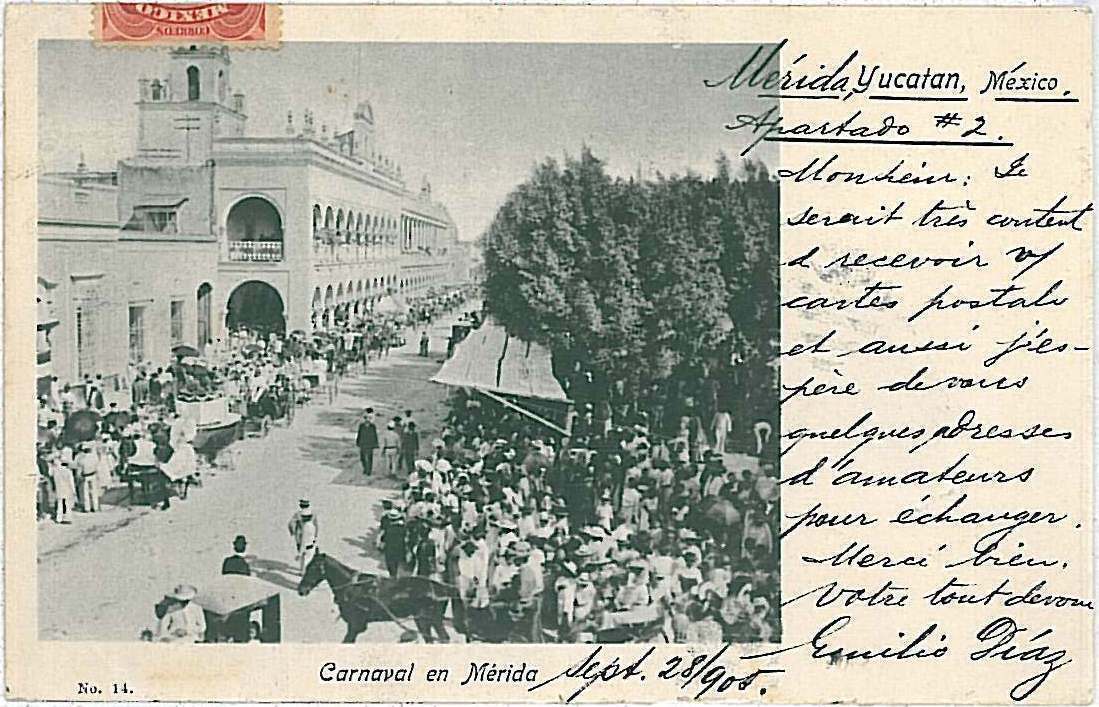 MEXICO
CORREOS
Mérida, Yucatan, México.
Apartado #2.
Monsieur: Je
serait très content
d recevoir v/
cartes postale
et aussi j'es-
père de vous
quelques adresses
d'amateurs
pour échanger.
Merci bien.
Votre tout devoue
Emilio Díaz
Carnaval en Mérida
Sept. 28/905.
No. 14.